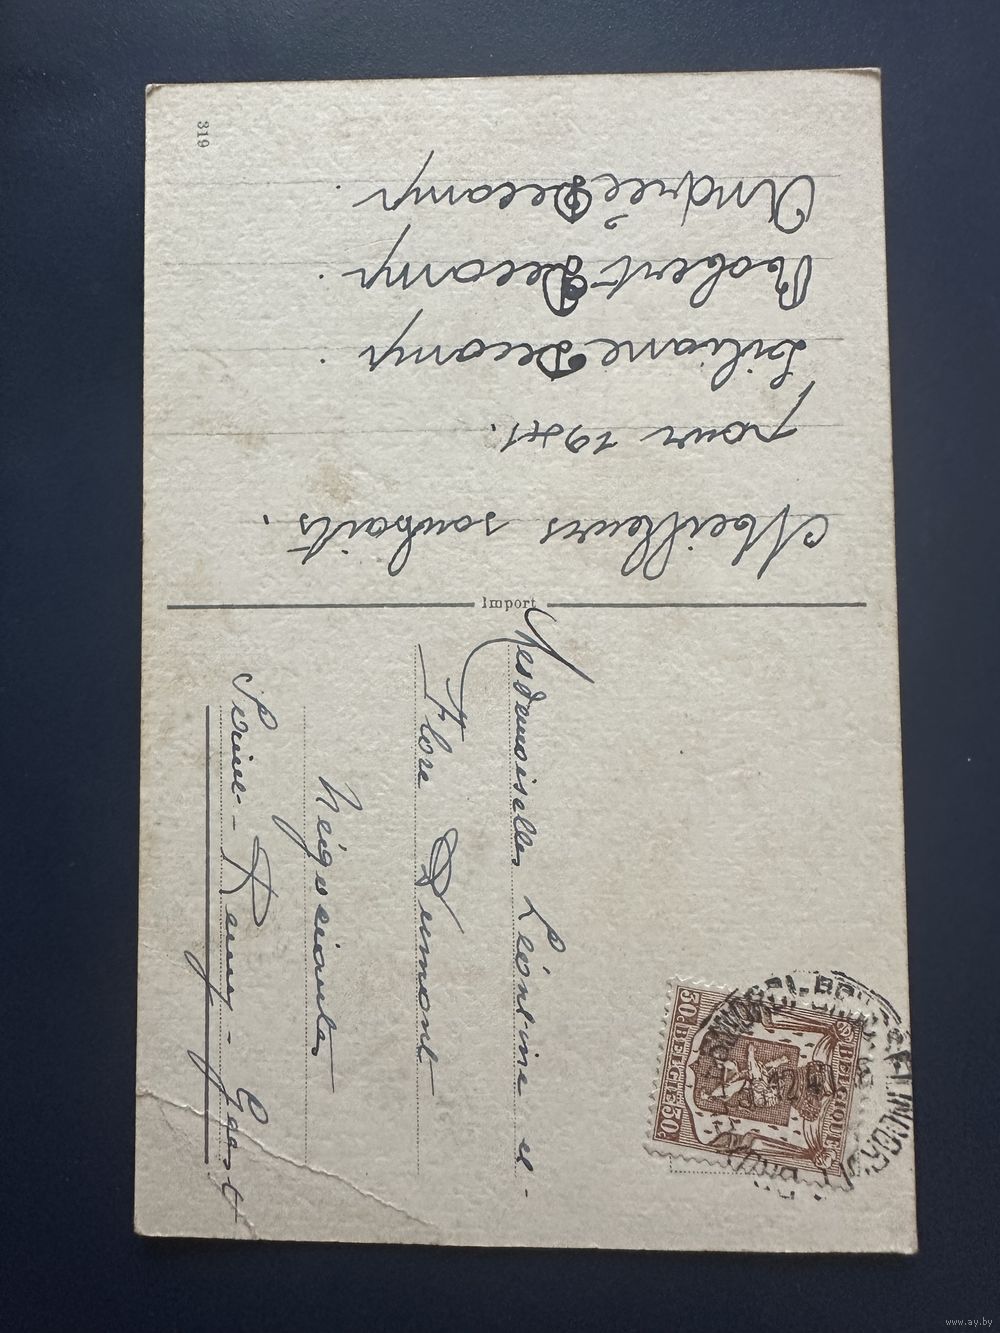 319
Meilleurs souhaits.
pour 1941.
Liliane Decamp.
Robert Decamp.
Andrée Decamp.
Import
Mesdemoiselles Léontine et
Flore Dumont
Négociantes
Perive-Remy-Geest
BELGIQUE
50c BELGIE 50c
www.ay.by